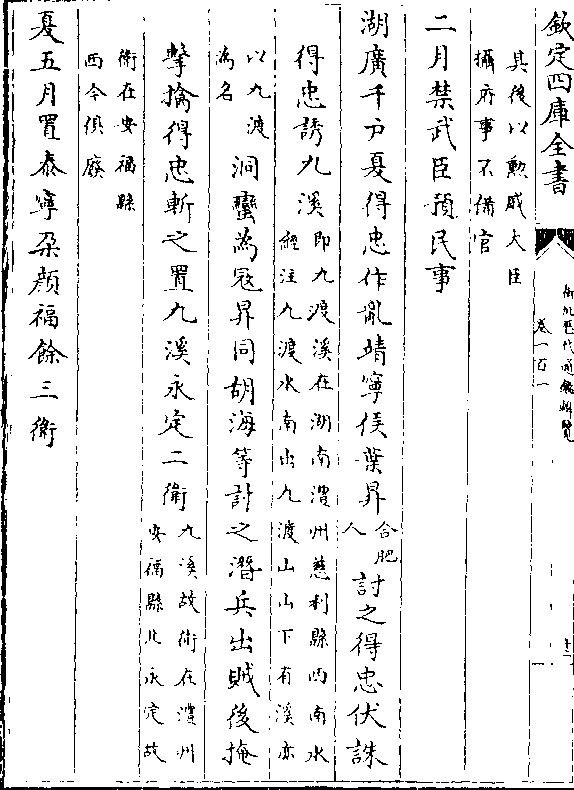 欽定四庫全書
御批歷代通鑑輯覽
卷一百一
十二
其後以勲戚大臣
攝府事不備官
二月禁武臣預民事
湖廣千戸夏得忠作亂靖寧侯葉昇
合肥
人
討之得忠伏誅
得忠誘九溪
即九渡溪在湖南澧州慈利縣西南水
經注九渡水南出九渡山山下有溪亦
以九渡
為名
洞蠻為冦昇同胡海等討之潛兵出賊後掩
擊擒得忠斬之置九溪永定二衛
九溪故衛在澧州
安福縣北永定故
衛在安福縣
西今俱廢
夏五月置泰寧朶顔福餘三衛